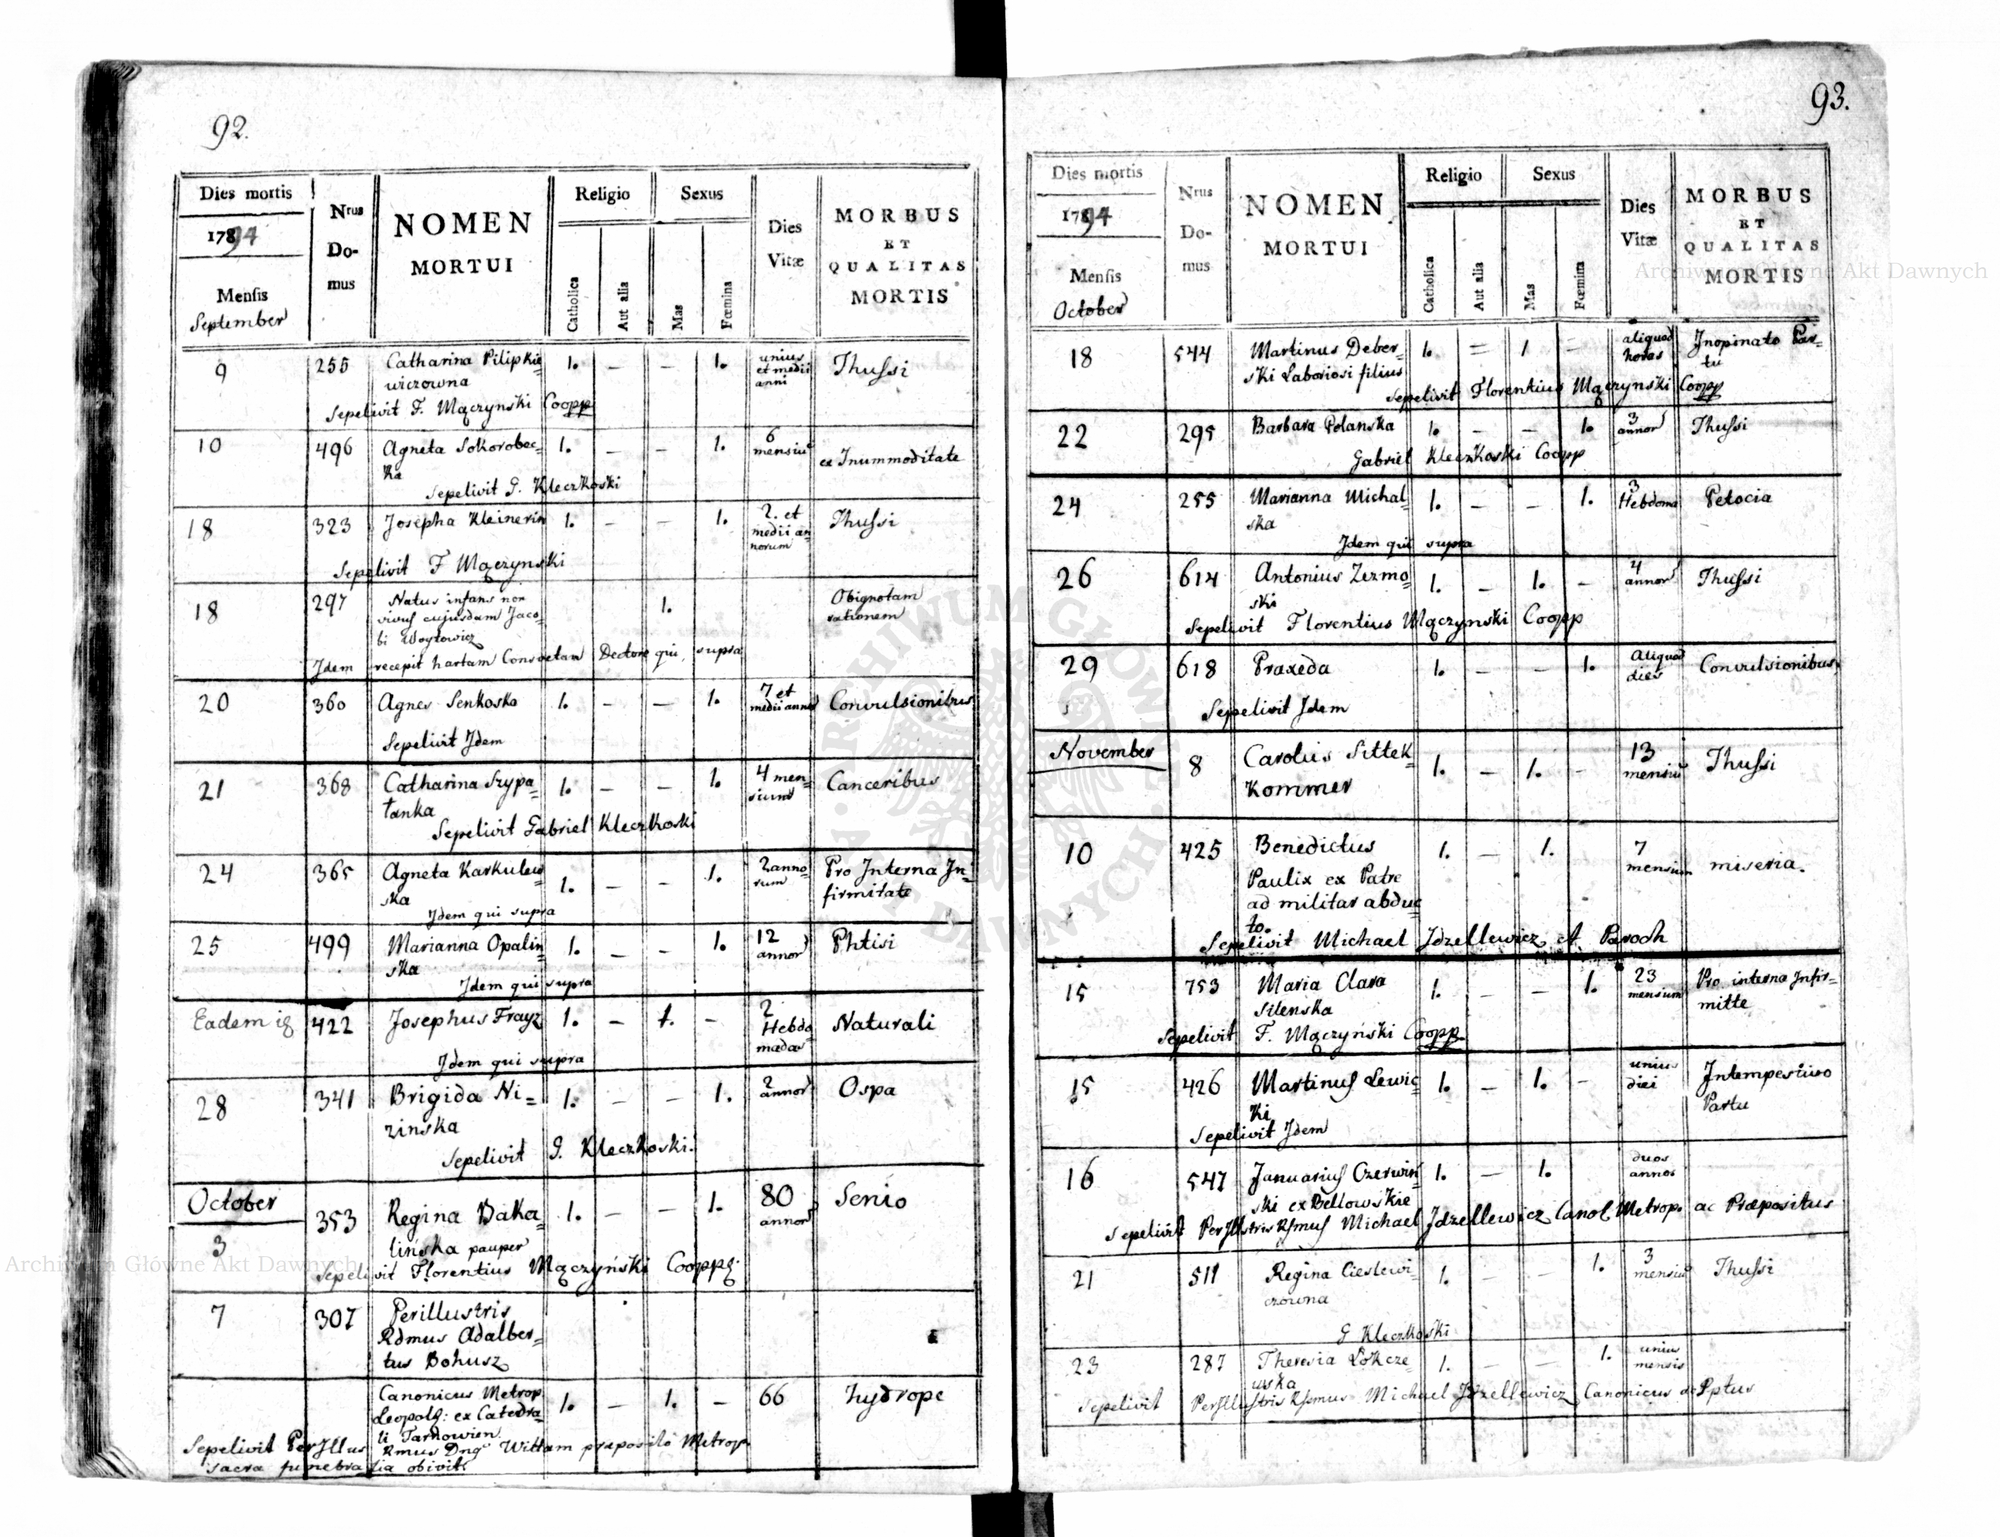 92.
Dies mortis
1794
Mensis
September
Nrus
Do-
mus
NOMEN
MORTUI
Religio
Catholica
Aut alia
Sexus
Mas
Fœmina
Dies
Vitæ
MORBUS
ET
QUALITAS
MORTIS
9 255 Catharina Pilipkie= 1. — — 1. unius Thussi
wiczowna et medii
anni
Sepelivit F. Mączynski Coopp
10 496 Agneta Sokorobec= 1. — — 1. 6 mensiu ex Inummoditate
ka
Sepelivit G. Kleczkoski
18 323 Josepha Kleinerin 1. — — 1. 2. et Thussi
medii an=
norum
Sepelivit F Mączynski
18 297 Natus infans non 1. Obignotam
vivus cujusdam Jaco= rationem
bi Woytowicz
Idem recepit hartam Consvetam Dectore qui supra
20 360 Agnes Senkoska 1. — — 1. 7 et Convulsionibus
medii annor
Sepelivit Idem
21 368 Catharina Szypa= 1. — — 1. 4 men= Canceribus
łanka sium
Sepelivit Gabriel Kleczkoski
24 365 Agneta Karkulew= 1. — — 1. 2 anno= Pro Interna In=
ska rum firmitate
Idem qui supra
25 499 Marianna Opalin= 1. — — 1. 12 Phtisi
ska annor
Idem qui supra
Eadem 422 Josephus Frayz 1. — 1. — 2 Naturali
Hebdo
madas
Idem qui supra
28 341 Brigida Ni= 1. — — 1. 2 Ospa
zinska annor
Sepelivit G. Kleczkoski.
October
3 353 Regina Baka= 1. — — 1. 80 Senio
lińska pauper annor
Sepelivit Florentius Mączyński Cooppq.
7 307 Perillustris
Rdmus Adalber=
tus Bohusz
Canonicus Metrop 1. — 1. — 66 hydrope
Leopolg: ex Catedra=
li Tarnowien
Sepelivit PerIllus Rmus Dng Wittam præposito Metrop
sacra funebralia obivit
93.
Dies mortis
1794
Mensis
October
Nrus
Do-
mus
NOMEN
MORTUI
Religio
Catholica
Aut alia
Sexus
Mas
Fœmina
Dies
Vitæ
MORBUS
ET
QUALITAS
MORTIS
18 544 Martinus Deber= 1. = 1 — aliquod Inopinato Par=
ski Laboriosi filius horas tu
Sepelivit Florentius Mączynski Coopp
22 295 Barbara Polanska 1. — — 1. 3 annor Thussi
Gabriel Kleczkoski Coopp
24 255 Marianna Michal= 1. — — 1. 3 Hebdoma Petocia
ska
Idem qui supra
26 614 Antonius Zezmo= 1. — 1. — 4 annor Thussi
ski
Sepelivit Florentius Mączynski Coopp
29 618 Praxeda 1. — — 1. Aliquod Convulsionibus
dies
Sepelivit Idem
November
8 Carolus Sittek= 1. — 1. — 13 Thussi
Kommer mensiu
10 425 Benedictus 1. — 1. 7 miseria.
Paulix ex Patre mensium
ad militar abduc=
to.
Sepelivit Michael Idzellewicz A Paroch
15 753 Maria Clara 1. — — 1. 23 Pro interna Infir=
Silenska mensium mitte
Sepelivit F. Mączyński Coopp
15 426 Martinus Lewic= 1. — 1. — unius Intempestivo
ki diei Partu
Sepelivit Idem
16 547 Januarius Czerwin= 1. — 1. duos
ski ex Bellowskie annos
Sepelivit PerIllustris Rsmus Michael Idzellewicz Canol Metrop. ac Præpositus
21 511 Regina Cieslewi= 1. — — 1. 3 Thussi
czowna mensiu
G Kleczkoski
23 287 Theresia Lokcze= 1. — — 1. unius
wska mensis
Sepelivit PerIllustris Rssmus Michael Idzellewicz Canonicus ac Pptus
Archiwum Główne Akt Dawnych
Archiwum Główne Akt Dawnych
ARCHIWUM GŁÓWNE AKT DAWNYCH